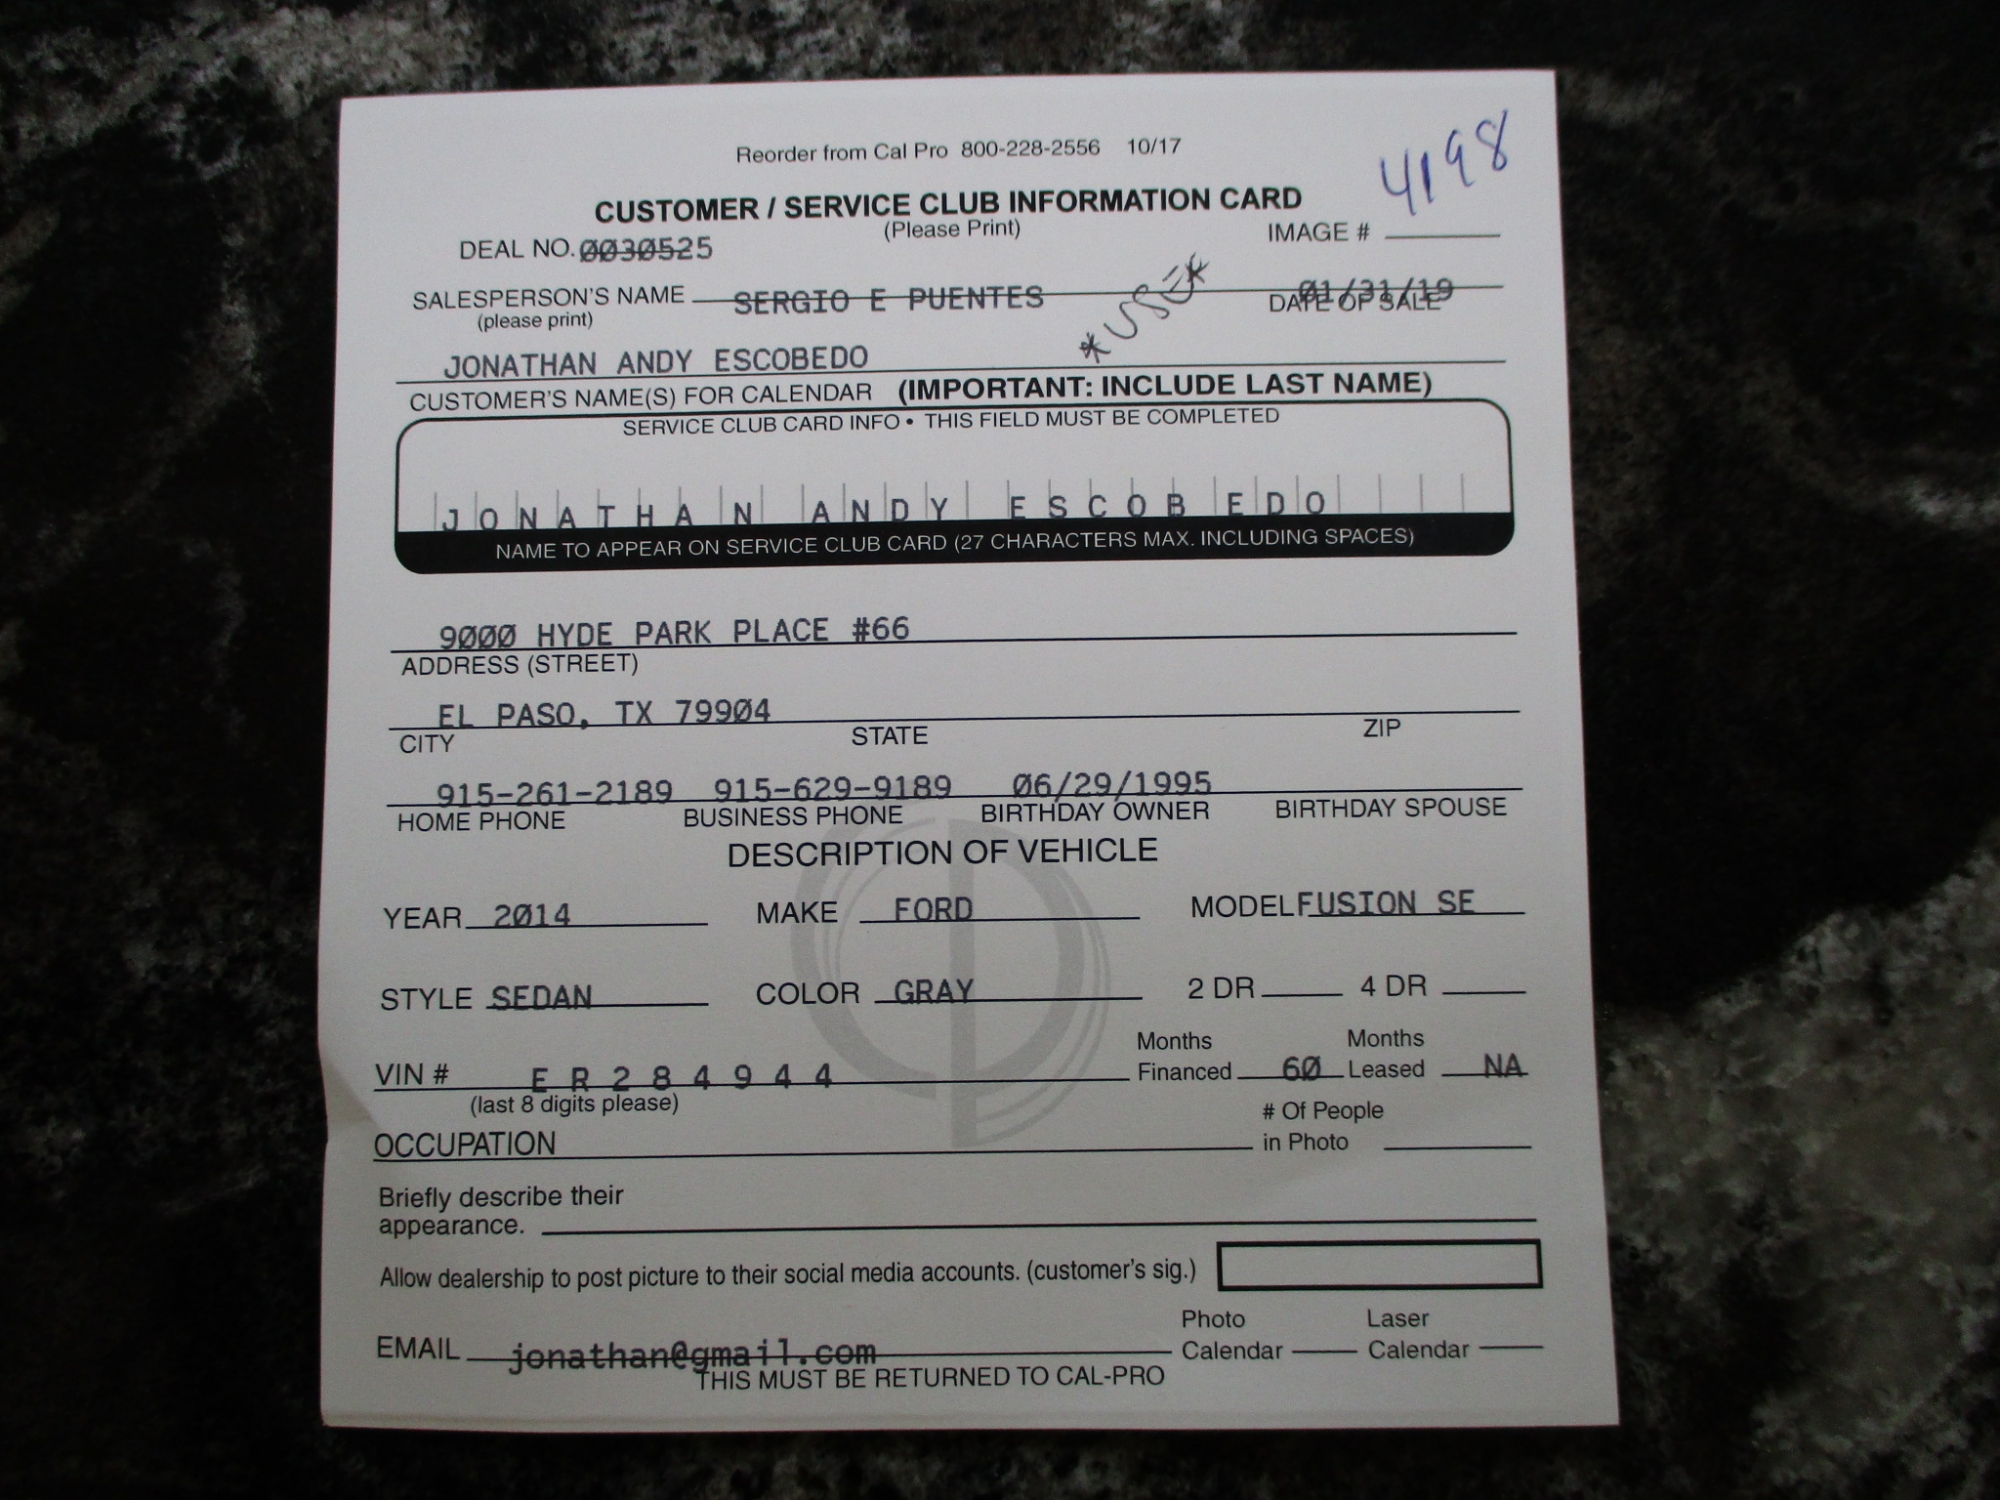 Reorder from Cal Pro 800-228-2556 10/17
4198
CUSTOMER / SERVICE CLUB INFORMATION CARD
(Please Print)
DEAL NO. 0030525
IMAGE #
SALESPERSON'S NAME SERGIO E PUENTES
(please print)
01/31/19
DATE OF SALE
*USED*
JONATHAN ANDY ESCOBEDO
CUSTOMER'S NAME(S) FOR CALENDAR (IMPORTANT: INCLUDE LAST NAME)
SERVICE CLUB CARD INFO • THIS FIELD MUST BE COMPLETED
JONATHAN ANDY ESCOBEDO
NAME TO APPEAR ON SERVICE CLUB CARD (27 CHARACTERS MAX. INCLUDING SPACES)
9000 HYDE PARK PLACE #66
ADDRESS (STREET)
EL PASO, TX 79904
CITY STATE ZIP
915-261-2189 915-629-9189 06/29/1995
HOME PHONE BUSINESS PHONE BIRTHDAY OWNER BIRTHDAY SPOUSE
DESCRIPTION OF VEHICLE
YEAR 2014 MAKE FORD MODEL FUSION SE
STYLE SEDAN COLOR GRAY 2 DR 4 DR
Months Months
VIN # ER284944 Financed 60 Leased NA
(last 8 digits please)
# Of People
OCCUPATION in Photo
Briefly describe their
appearance.
Allow dealership to post picture to their social media accounts. (customer's sig.)
Photo Laser
EMAIL jonathan@gmail.com Calendar Calendar
THIS MUST BE RETURNED TO CAL-PRO